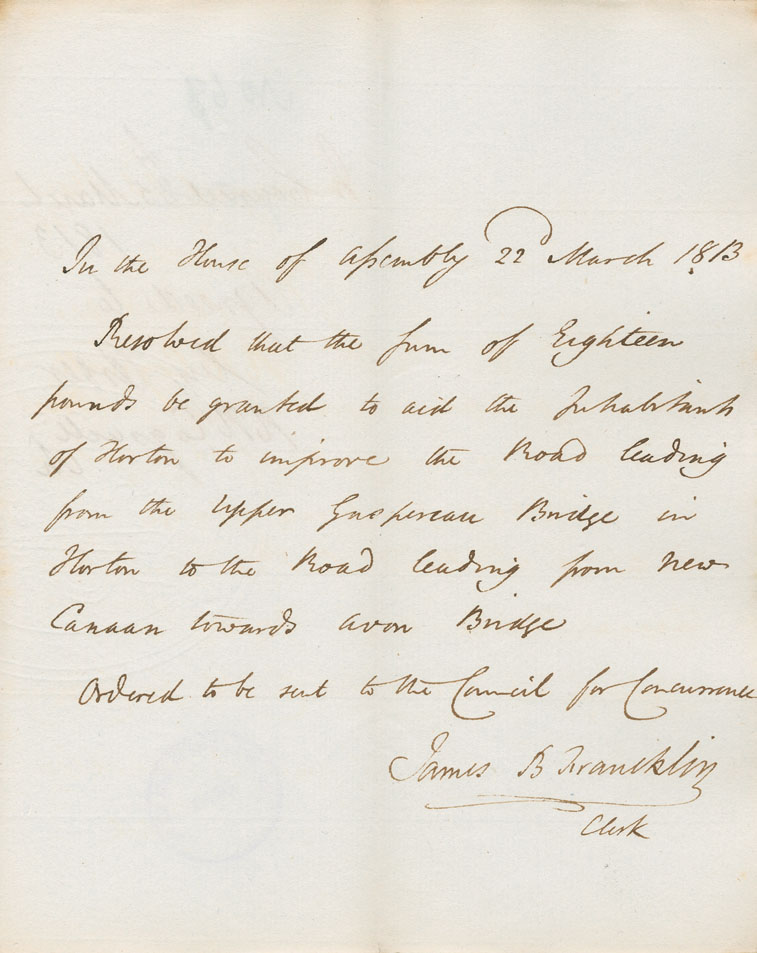 In the House of Assembly 22d March 1813
Resolved that the sum of Eighteen
pounds be granted to aid the Inhabitants
of Horton to improve the Road leading
from the Upper Gaspereau Bridge in
Horton to the Road leading from New
Canaan towards Avon Bridge
Ordered to be sent to the Council for Concurrence
James B Francklin
Clerk